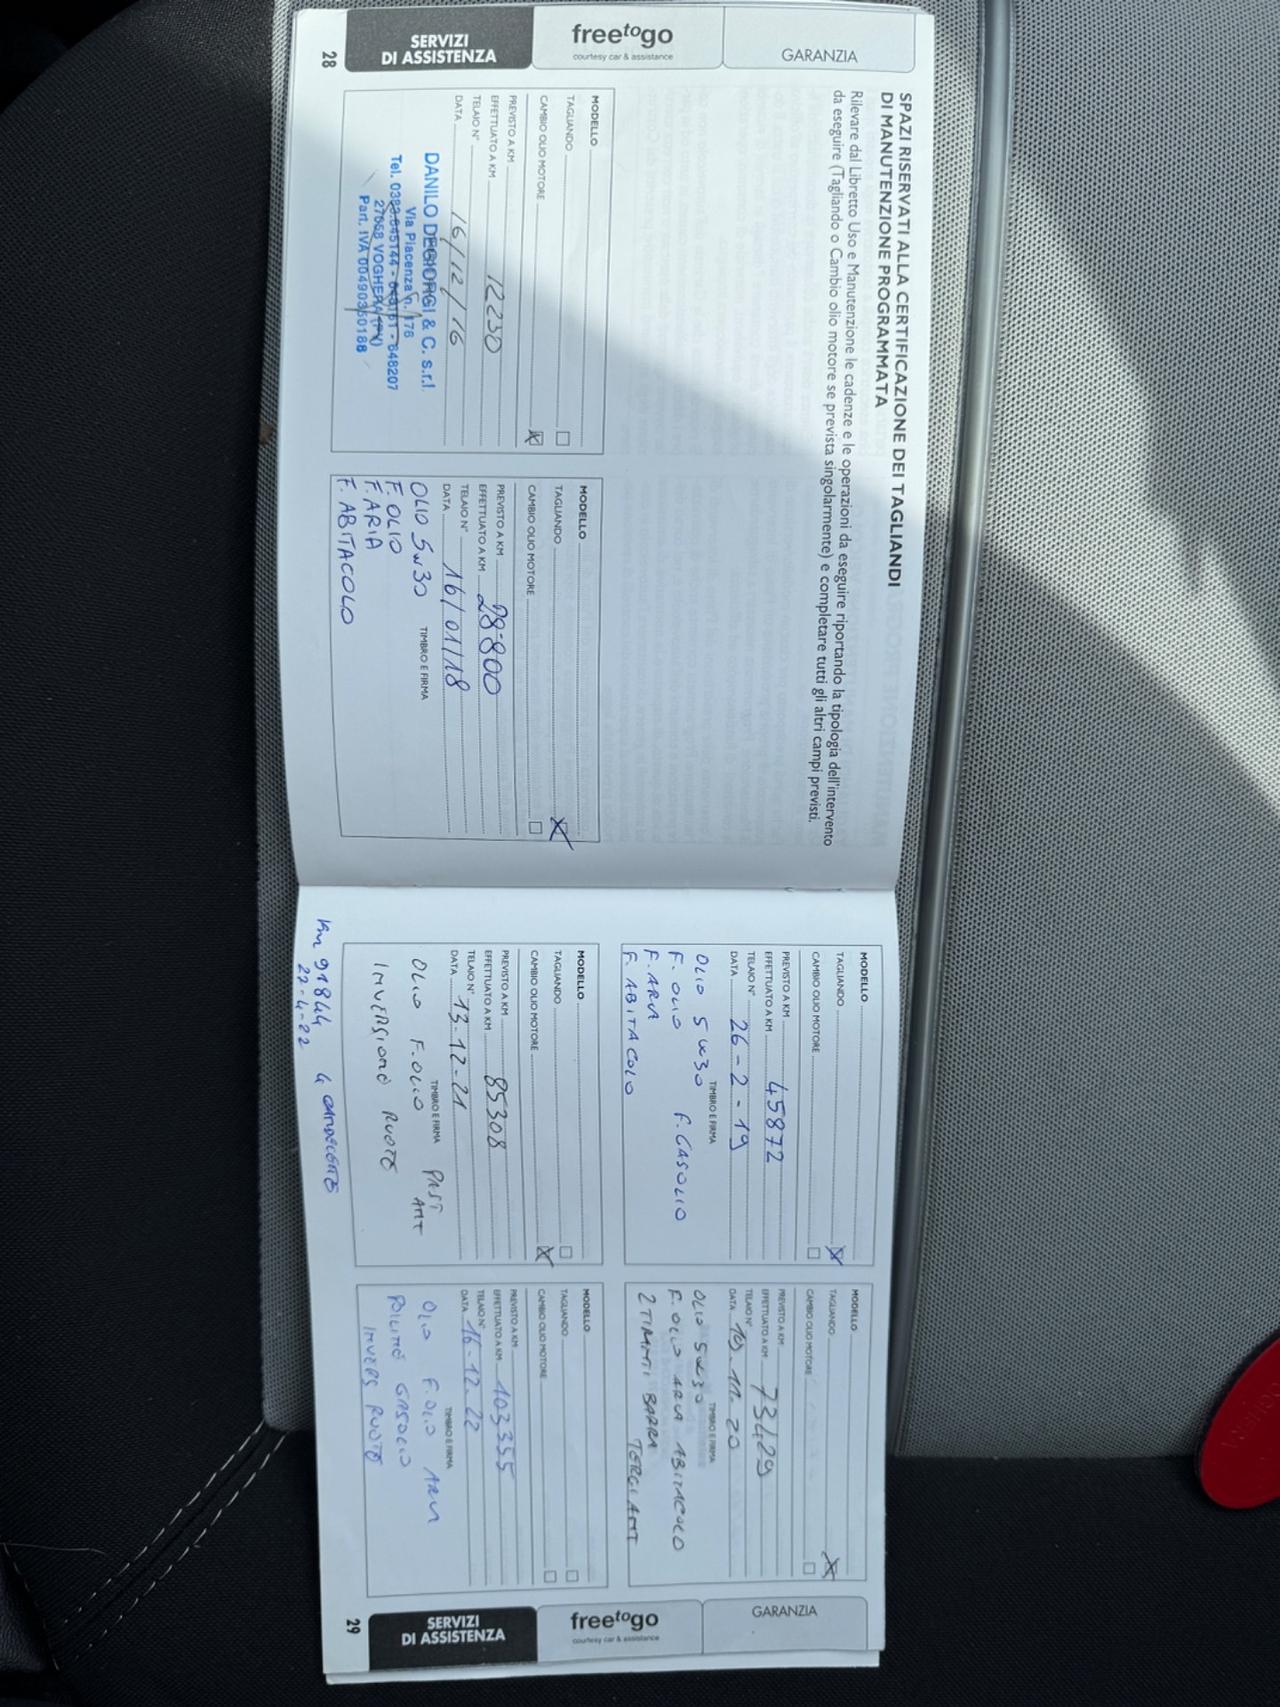 SPAZI RISERVATI ALLA CERTIFICAZIONE DEI TAGLIANDI
DI MANUTENZIONE PROGRAMMATA
Rilevare dal Libretto Uso e Manutenzione le cadenze e le operazioni da eseguire riportando la tipologia dell'intervento
da eseguire (Tagliando o Cambio olio motore se prevista singolarmente) e completare tutti gli altri campi previsti.
GARANZIA
freetogo
courtesy car & assistance
SERVIZI
DI ASSISTENZA
28
MODELLO
TAGLIANDO
CAMBIO OLIO MOTORE
PREVISTO A KM
EFFETTUATO A KM 12230
TELAIO N°
DATA 16/12/16
DANILO DEGIORGI & C. s.r.l.
Via Piacenza n. 176
Tel. 0383.645144 - 648207
27058 VOGHERA (PV)
Part. IVA 00490350188
MODELLO
TAGLIANDO
CAMBIO OLIO MOTORE
PREVISTO A KM
EFFETTUATO A KM 28800
TELAIO N°
DATA 16/01/18
OLIO 5W30 TIMBRO E FIRMA
F. OLIO
F. ARIA
F. ABITACOLO
MODELLO
TAGLIANDO
CAMBIO OLIO MOTORE
PREVISTO A KM
EFFETTUATO A KM 45872
TELAIO N°
DATA 26-2-19
TIMBRO E FIRMA
OLIO 5W30 F. GASOLIO
F. OLIO
F. ARIA
F. ABITACOLO
MODELLO
TAGLIANDO
CAMBIO OLIO MOTORE
PREVISTO A KM
EFFETTUATO A KM 73429
TELAIO N°
DATA 10.11.20
TIMBRO E FIRMA
OLIO 5W30
F. OLIO ARIA ABITACOLO
2 TIRANTI BARRA
ANT
MODELLO
TAGLIANDO
CAMBIO OLIO MOTORE
PREVISTO A KM
EFFETTUATO A KM 85308
TELAIO N°
DATA 13.12.21
TIMBRO E FIRMA
OLIO F. OLIO PAST
ANT
INVERSIONE RUOTE
Km 91844 4 CANDELETTE
27-4-22
MODELLO
TAGLIANDO
CAMBIO OLIO MOTORE
PREVISTO A KM
EFFETTUATO A KM 103355
TELAIO N°
DATA 16-12-22
TIMBRO E FIRMA
OLIO F. OLIO ARIA
GASOLIO
INVERS RUOTE
GARANZIA
freetogo
courtesy car & assistance
SERVIZI
DI ASSISTENZA
29